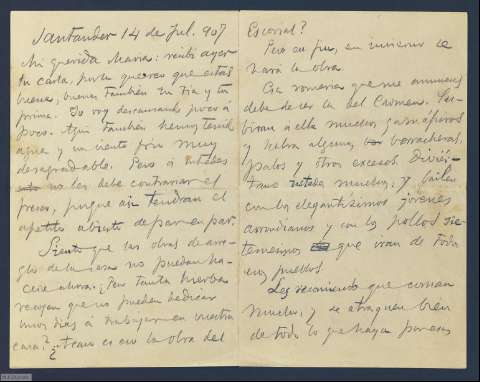 Santander 14 de Jul. 907
Mi querida Maria: recibí ayer
tu carta, por la que creo que estás
buena, buenos también tu tia y tu
primo. Yo voy descansando poco á
poco. Aquí también hemos tenido
agua y un viento frio muy
desagradable. Pero á Ustedes
no les debe contrariar el
fresco, porque asi tendran el
apetito abierto de par en par.
Siento que las obras de arre-
glo de la casa no puedan ha-
cerse ahora. ¿Pero tanta hierba
recogen que no pueden dedicar
unos dias á trabajar en vuestra
casa? ¿Acaso es eso la obra del
Escorial?
Pero en fin, en invierno se
hará la obra.
Esa romeria que me anuncias
debe de ser la del Carmen. Su-
birán á ella muchos
y habrá algunas borracheras,
palos y otros excesos. Divier-
tanse ustedes mucho, y bailen
con los elegantisimos jovenes
y con los pollos sie-
temesinos que iran de todos
esos pueblos.
Les recomiendo que coman
mucho, y se atraquen bien
de todo lo que haya por esos